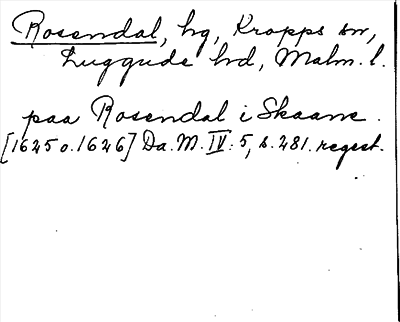 Rosendal, hg, Kropps sn,
Luggude hd, Malm. l.
paa Rosendal i Skaane.
[1625 o. 1626] Da. M. IV: 5, s. 281. regest.